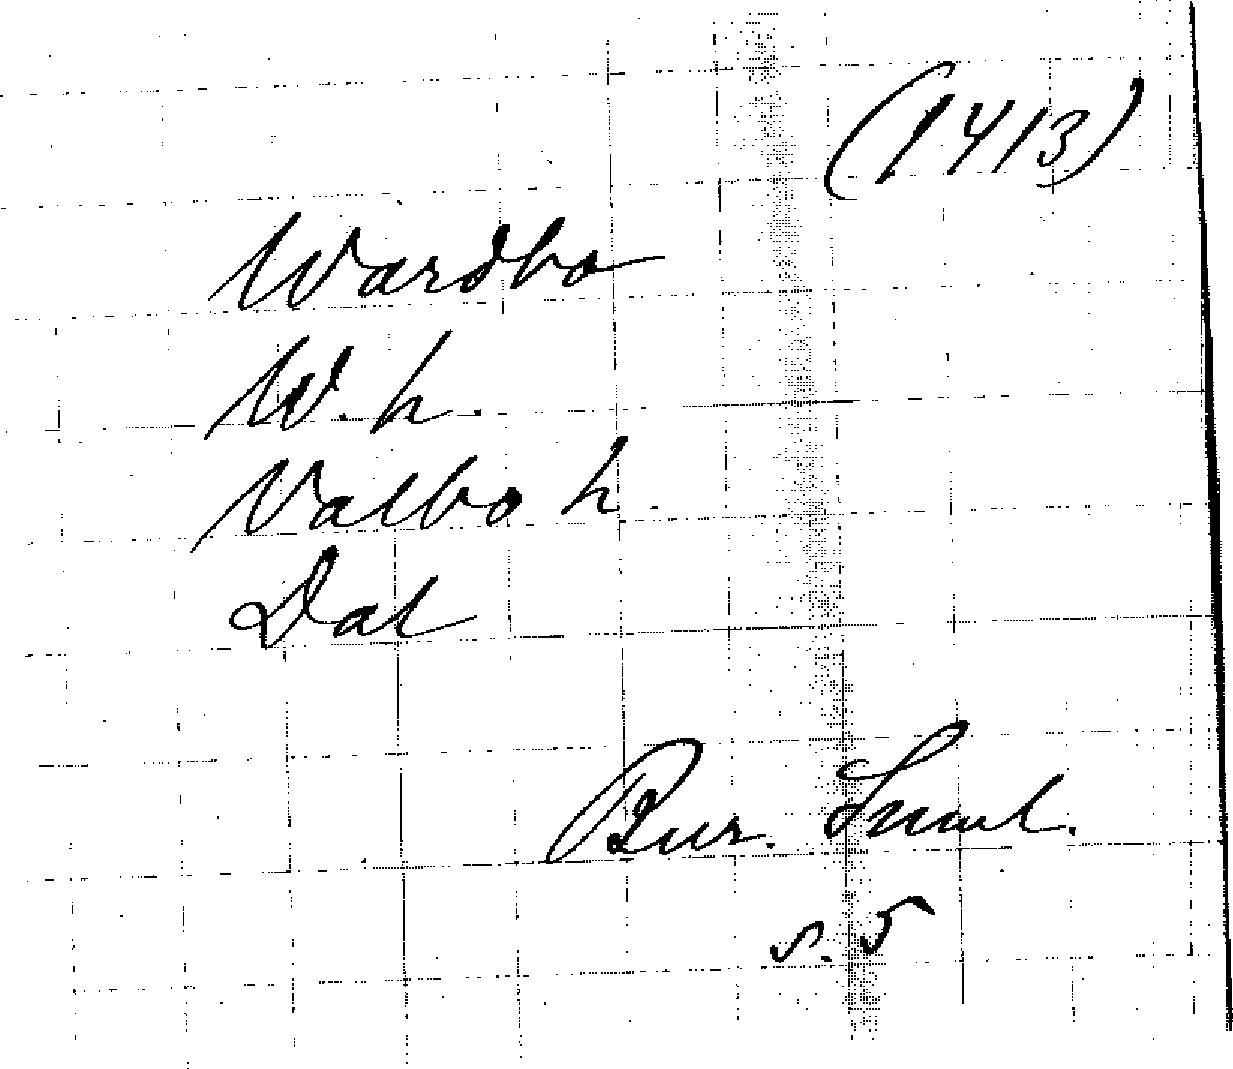 (1413)
Wardbo
W. h.
Valbo h.
Dal
Bur. Suml.
s. 5